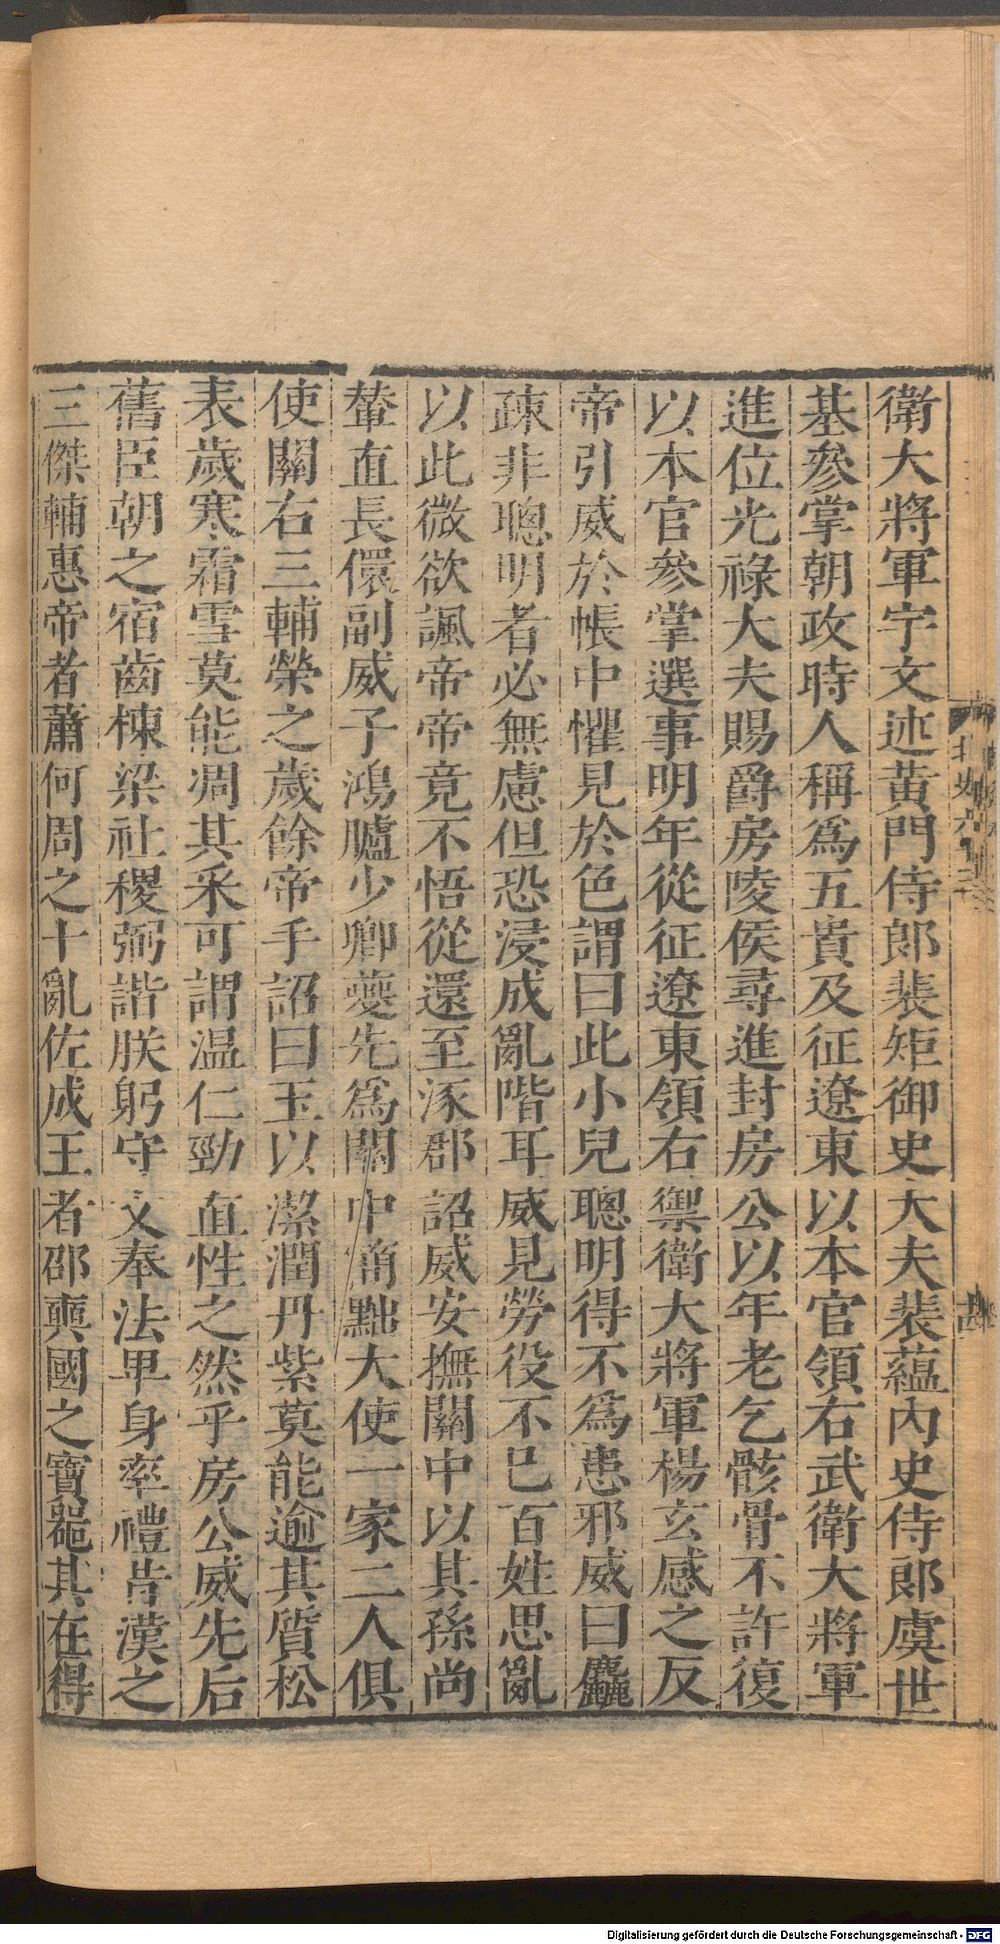 衛大將軍宇文述黃門侍郎裴矩御史大夫裴蘊內史侍郎虞世
基參掌朝政時人稱爲五貴及征遼東以本官領右武衛大將軍
進位光祿大夫賜爵房陵侯尋進封房公以年老乞骸骨不許復
以本官參掌選事明年從征遼東領右禦衛大將軍楊玄感之反
帝引威於帳中懼見於色謂曰此小兒聰明得不爲患邪威曰麤
疎非聰明者必無慮但恐浸成亂階耳威見勞役不巳百姓思亂
以此微欲諷帝帝竟不悟從還至涿郡詔威安撫關中以其孫尚
輦直長儇副威子鴻臚少卿夔先爲關中簡黜大使一家二人俱
使關右三輔榮之歲餘帝手詔曰玉以潔潤丹紫莫能逾其質松
表歲寒霜雪莫能凋其采可謂温仁勁直性之然乎房公威先后
舊臣朝之宿齒棟梁社稷弼諧朕躬守文奉法卑身率禮昔漢之
三傑輔惠帝者蕭何周之十亂佐成王者邵奭國之寶器其在得
北史六十三
Digitalisierung gefördert durch die Deutsche Forschungsgemeinschaft - DFG